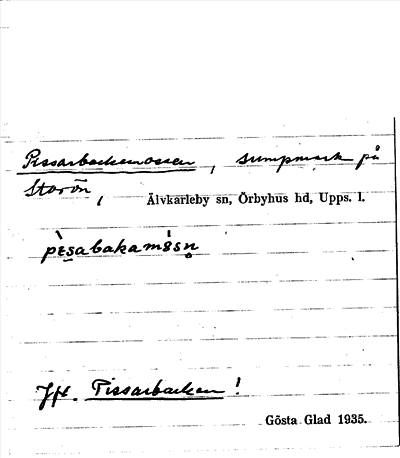 Pissarbackmossen, sumpmark på
Storön, Älvkarleby sn, Örbyhus hd, Upps. l.
Jfr. Tissarbacken!
Gösta Glad 1935.